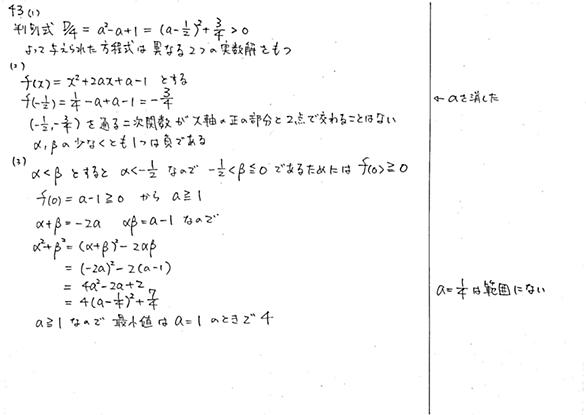 43 (1)
判別式 D/4 = a²-a+1 = (a-1/2)²+3/4 > 0
よって与えられた方程式は異なる2つの実数解をもつ
(2)
f(x) = x²+2ax+a-1 とする
f(-1/2) = 1/4 - a + a - 1 = -3/4
← aを消した
(-1/2, -3/4) を通る二次関数がx軸の正の部分と2点で交わることはない
α, βの少なくとも1つは負である
(3)
α<β とすると α<-1/2 なので -1/2<β≦0 であるためには f(0)≧0
f(0) = a-1≧0 から a≧1
α+β = -2a αβ = a-1 なので
α²+β² = (α+β)² - 2αβ
= (-2a)² - 2(a-1)
= 4a²-2a+2
= 4(a-1/4)²+7/4
a=1/4は範囲にない
a≧1 なので 最小値は a=1 のときで 4